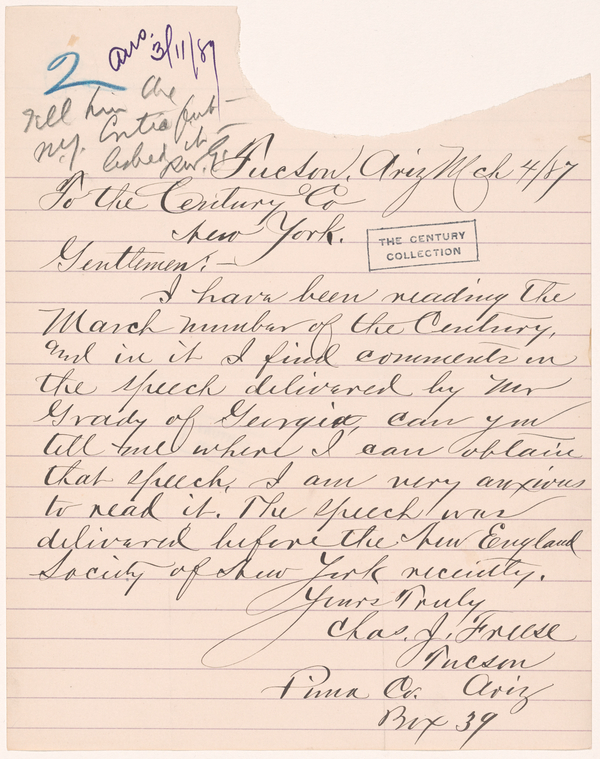 2
ans. 3/11/87
Tell him the
N.Y. Critic pub-
lished it
Tucson, Ariz Mch 4/87
To the Century Co
New York.
THE CENTURY
COLLECTION
Gentlemen:-
I have been reading the
March number of the Century,
and in it I find comments on
the speech delivered by Mr
Grady of Georgia, can you
tell me where I can obtain
that speech, I am very anxious
to read it. The speech was
delivered before the New England
Society of New York recently.
Yours Truly
Chas. J. Freese
Tucson
Pima Co. Ariz
Box 39